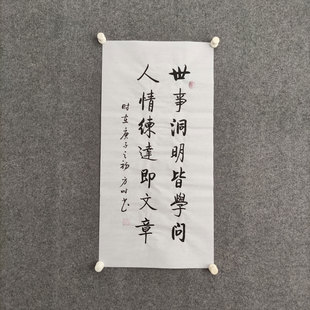 世事洞明皆學问
人情练達即文章
时在庚子之初方